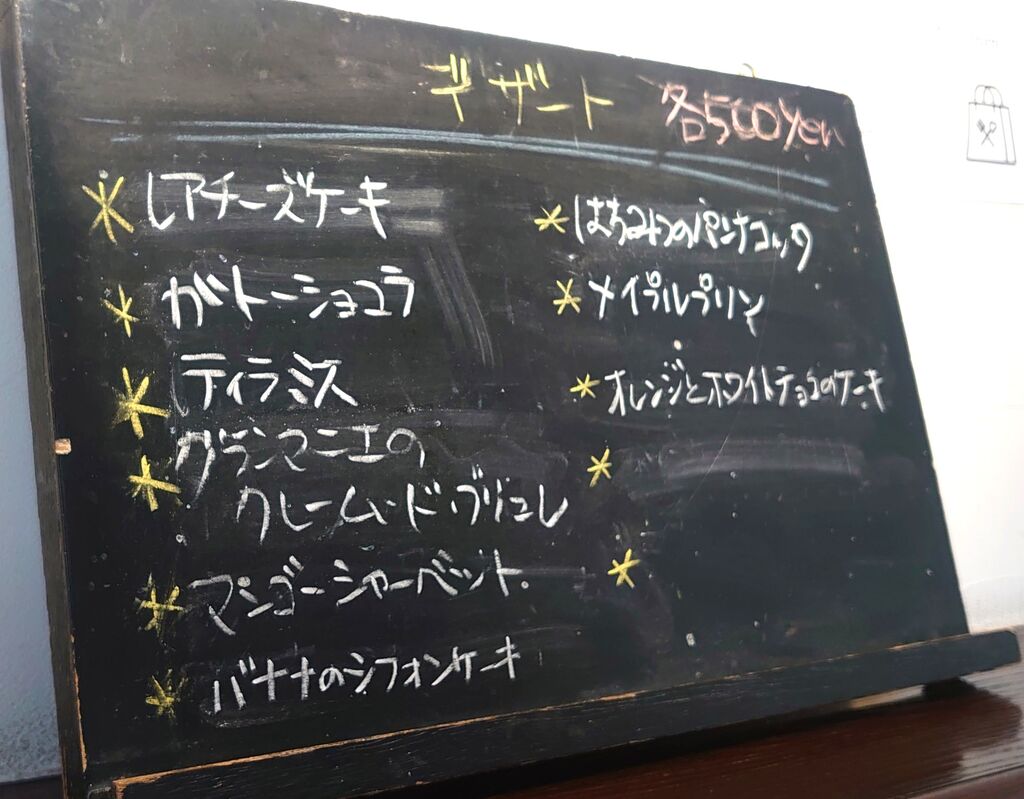 デザート 各500Yen
* レアチーズケーキ
* ガトーショコラ
* ティラミス
* グランマニエの
クレーム・ド・ブリュレ
* マンゴーシャーベット
* バナナのシフォンケーキ
* はちみつのパンナコッタ
* メイプルプリン
* オレンジとホワイトチョコのケーキ
*
*